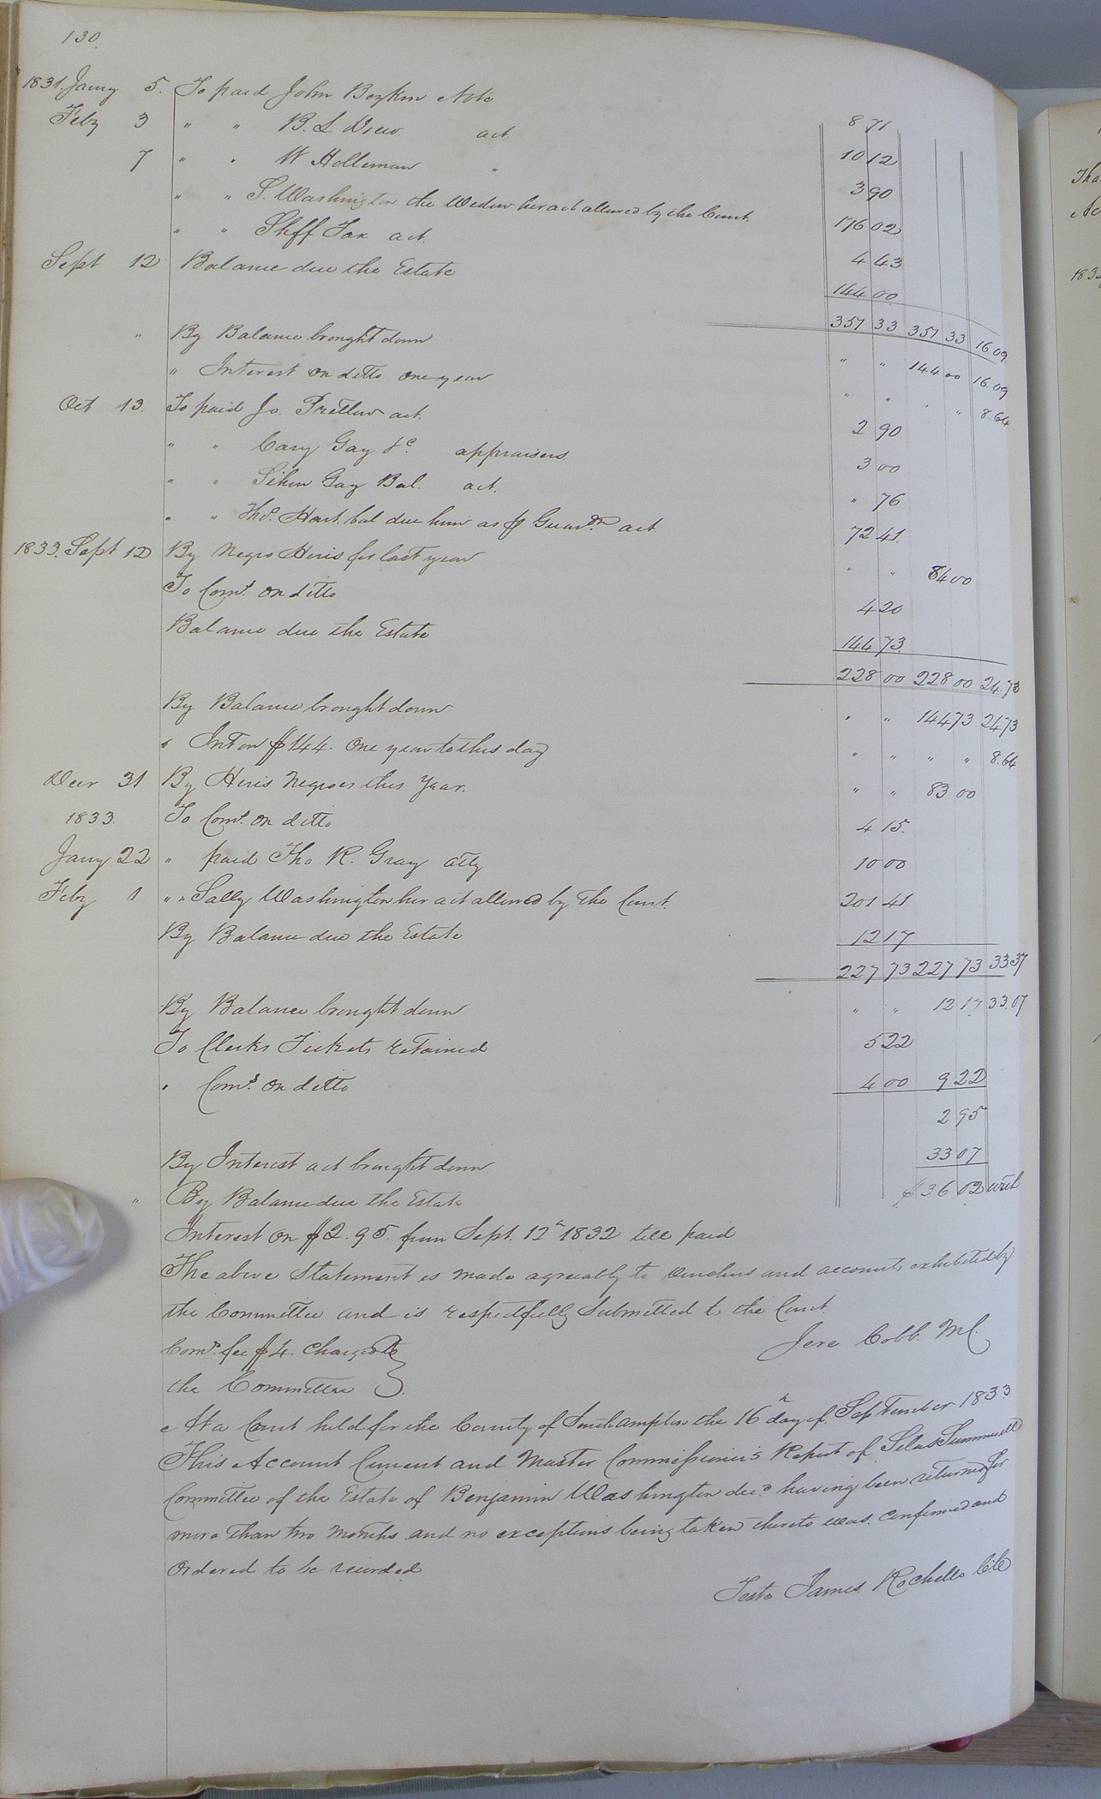 130.
1831 Jany 5. To paid John Boykin Note 8 71
Feby 3 " " B. L Drew. act 10 12
7 " " W Holleman " 3 90
" " S. Washington the Widow her act allowed by the Court. 176 02
" " Shff Tax act. 4 43
Sept 12 Balance due the Estate 144 00
357 33 357 33 16 09
" By Balance brought down " " 144 00 16 09
" Interest on ditto one year " " " " 8.64
Oct 13. To paid Jo. Pretlow act. 2 90
" " Cary Gay &c. appraisers. 3 00
" " Gay Bal. act. " 76
" " Thos. Hart bal due him as Guardn. act 72 41.
1833. Sept 12 By Negro Hires for last year " " 84 00
To Coms. on ditto 4 20
Balance due the Estate 144 73
228 00 228 00 24.73
By Balance brought down " " 144 73 24 73
" Int on $144. One year to this day " " " " 8.64
Decr 31 By Hires Negroes this Year. " " 83 00
1833. To Coms. on ditto 4 15.
Jany 22 " paid Tho R. Gray atty 10 00
Feby 1 " " Sally Washington her act allowed by the Court. 201 41
By Balance due the Estate 12 17
227 73 227 73 33 37
By Balance brought down " " 12 17 33.07
To Clerks Tickets retained 5 22
" Coms. on ditto 4 00 9 22
2 95
By Interest act brought down 33 07
" By Balance due the Estate $36 02 with
Interest on $2.95. from Sept. 12th 1832 till paid
The above Statement is made agreeably to vouchers and accounts exhibited by
the Committee and is respectfully Submitted to the Court
Comr. fee $4. Charged to Jere Cobb MC.
the Committee
At a Court held for the County of Southampton the 16th day of September 1833
This Account Current and Master Commissioner's Report of Silas Summerell
Committee of the Estate of Benjamin Washington decd. having been returned for
more than two months and no exceptions being taken thereto was confirmed and
Ordered to be recorded
Teste James Rochelle Clk